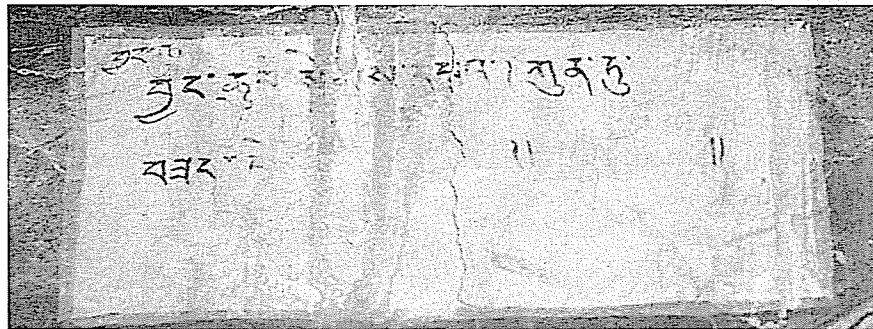 བྱང་
བྱང་ཆུབ་ སེམས་དཔའ་། ཀུན་ཏུ་
བཟང་ ༎ ༎